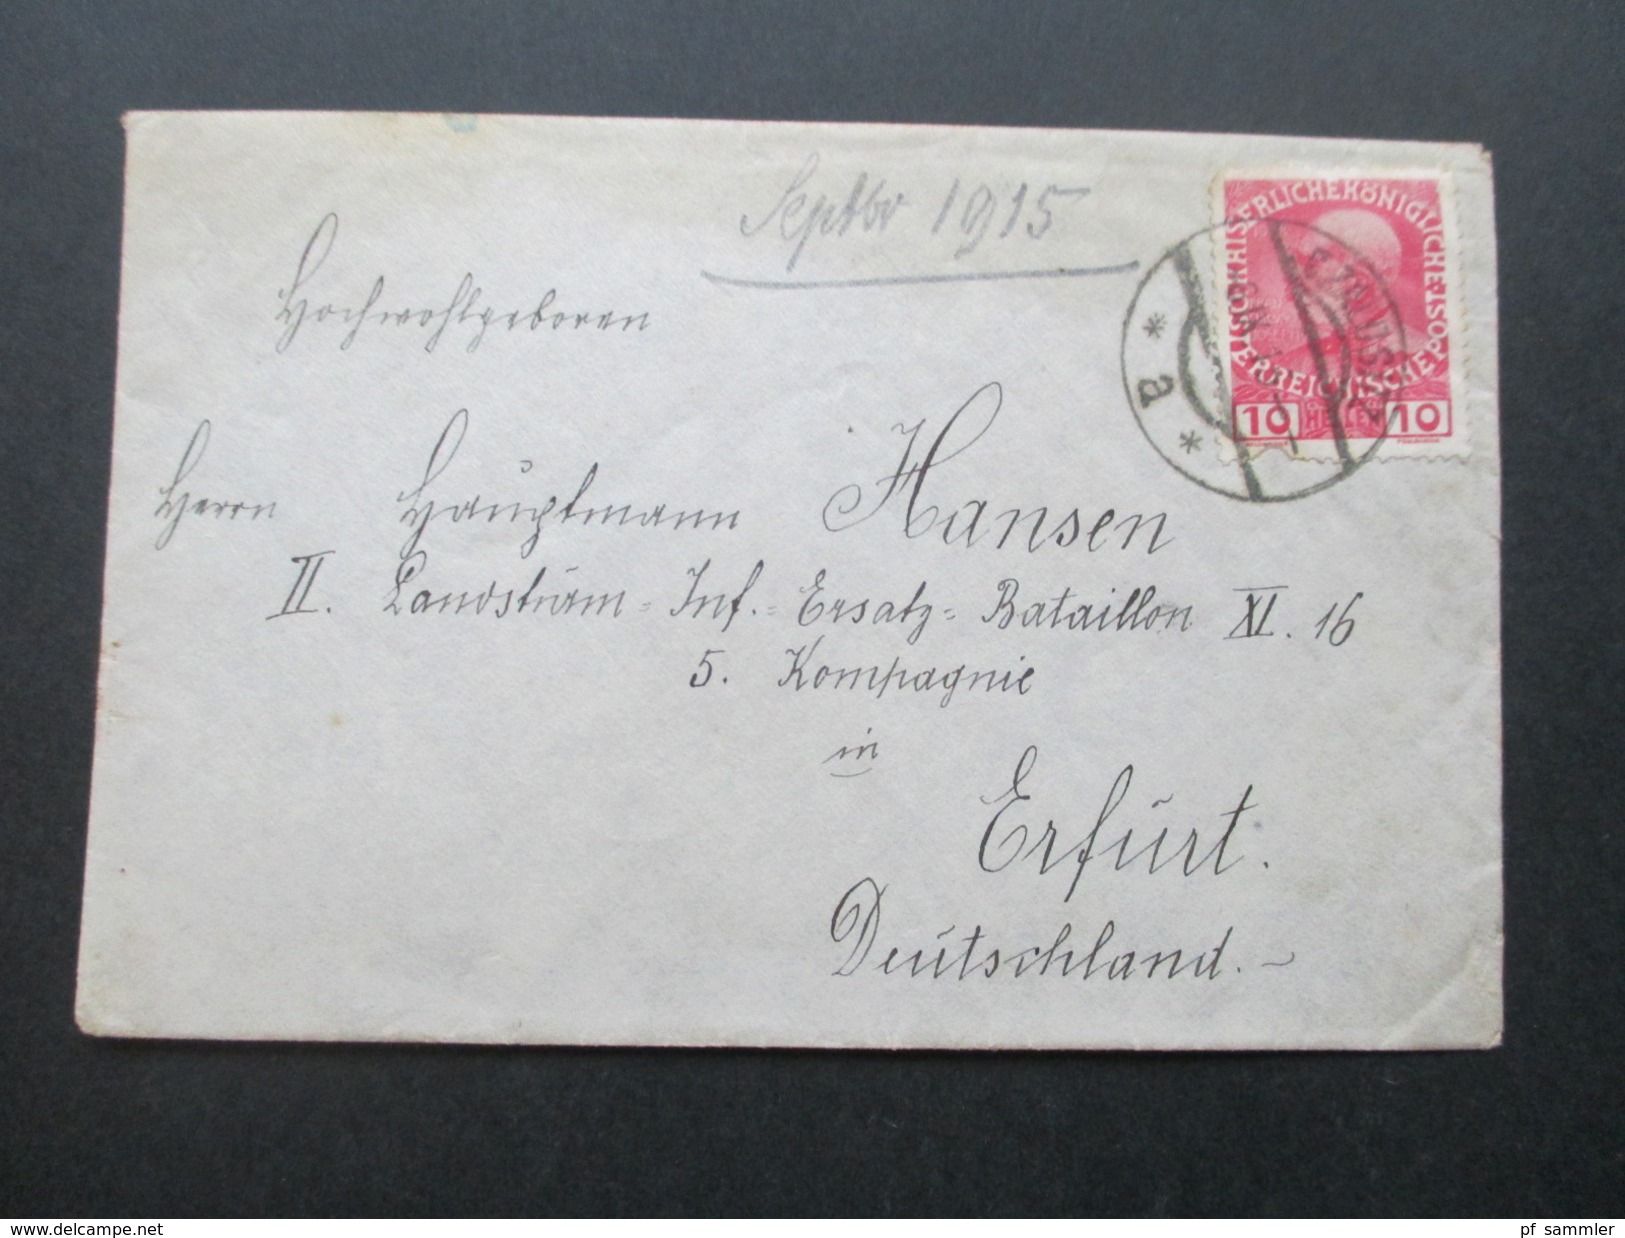 Septbr 1915
KAISERLICHE KÖNIGLICHE
ÖSTERREICHISCHE POST
10 HELLER 10
a
Hochwohlgeboren
Herrn Hauptmann Hansen
II. Landstūrm = Inf. = Ersatz = Bataillon XI. 16
5. Kompagnie
in
Erfūrt.
Deūtschland. ~
www.delcampe.net
pf_sammler